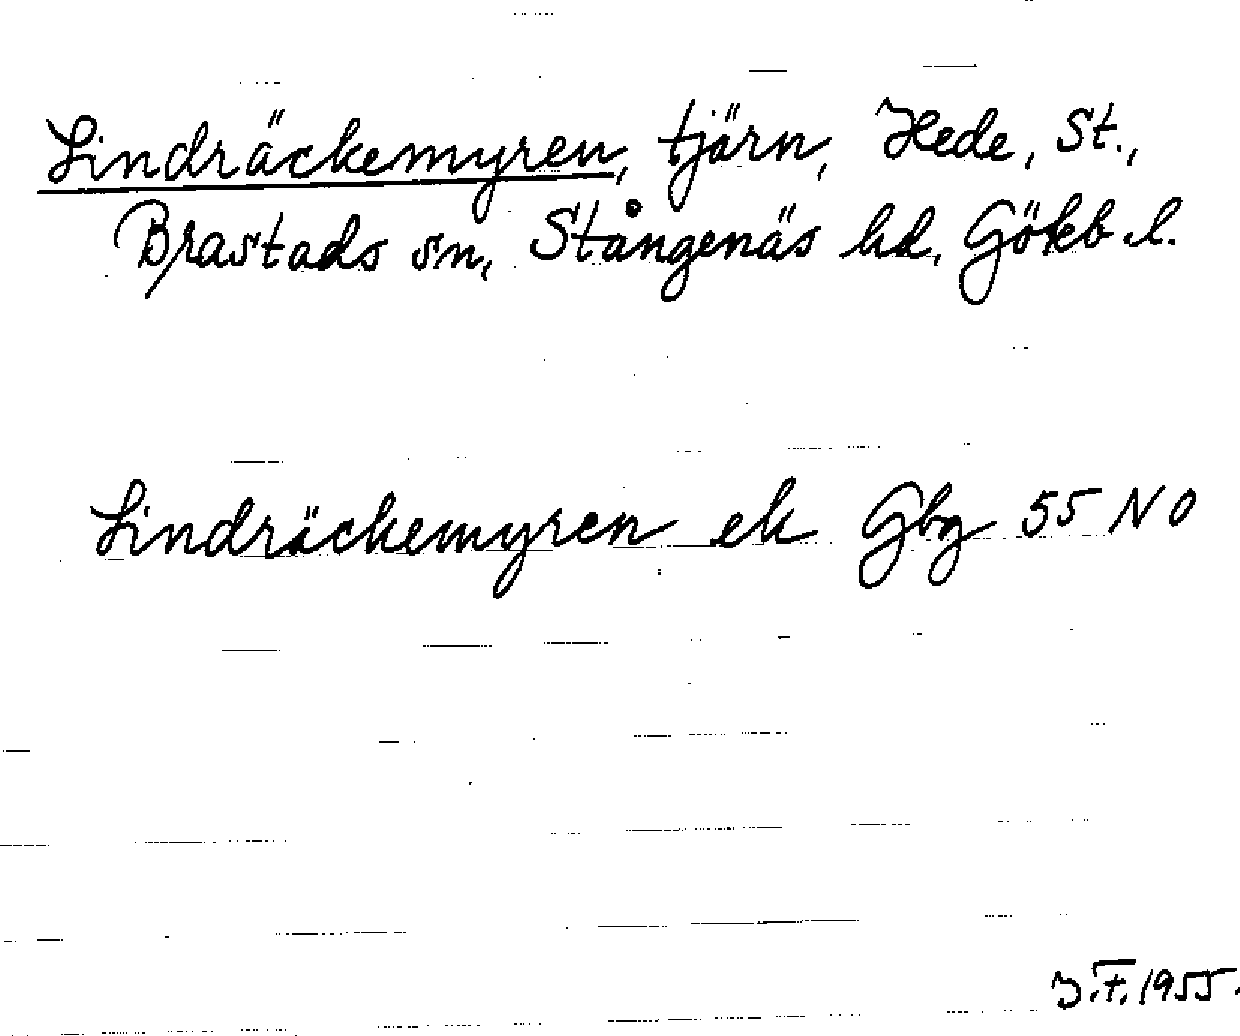 Lindräckemyren, tjärn, Hede, St.,
Brastads sn, Stångenäs hd, Gökb l.
Lindräckemyren ek Gbg 55 NO
J.F. 1955.